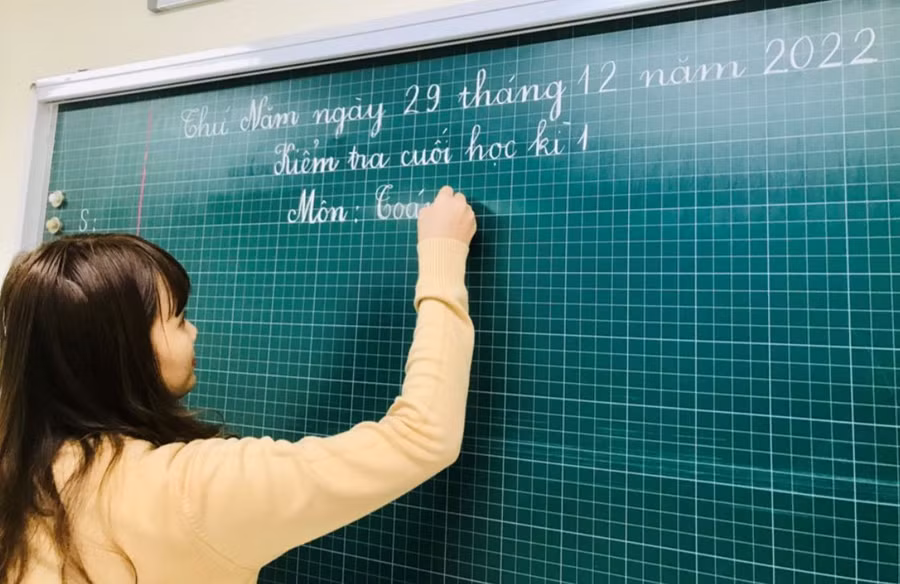 Thứ Năm ngày 29 tháng 12 năm 2022
Kiểm tra cuối học kì 1
Môn: Toá
S: